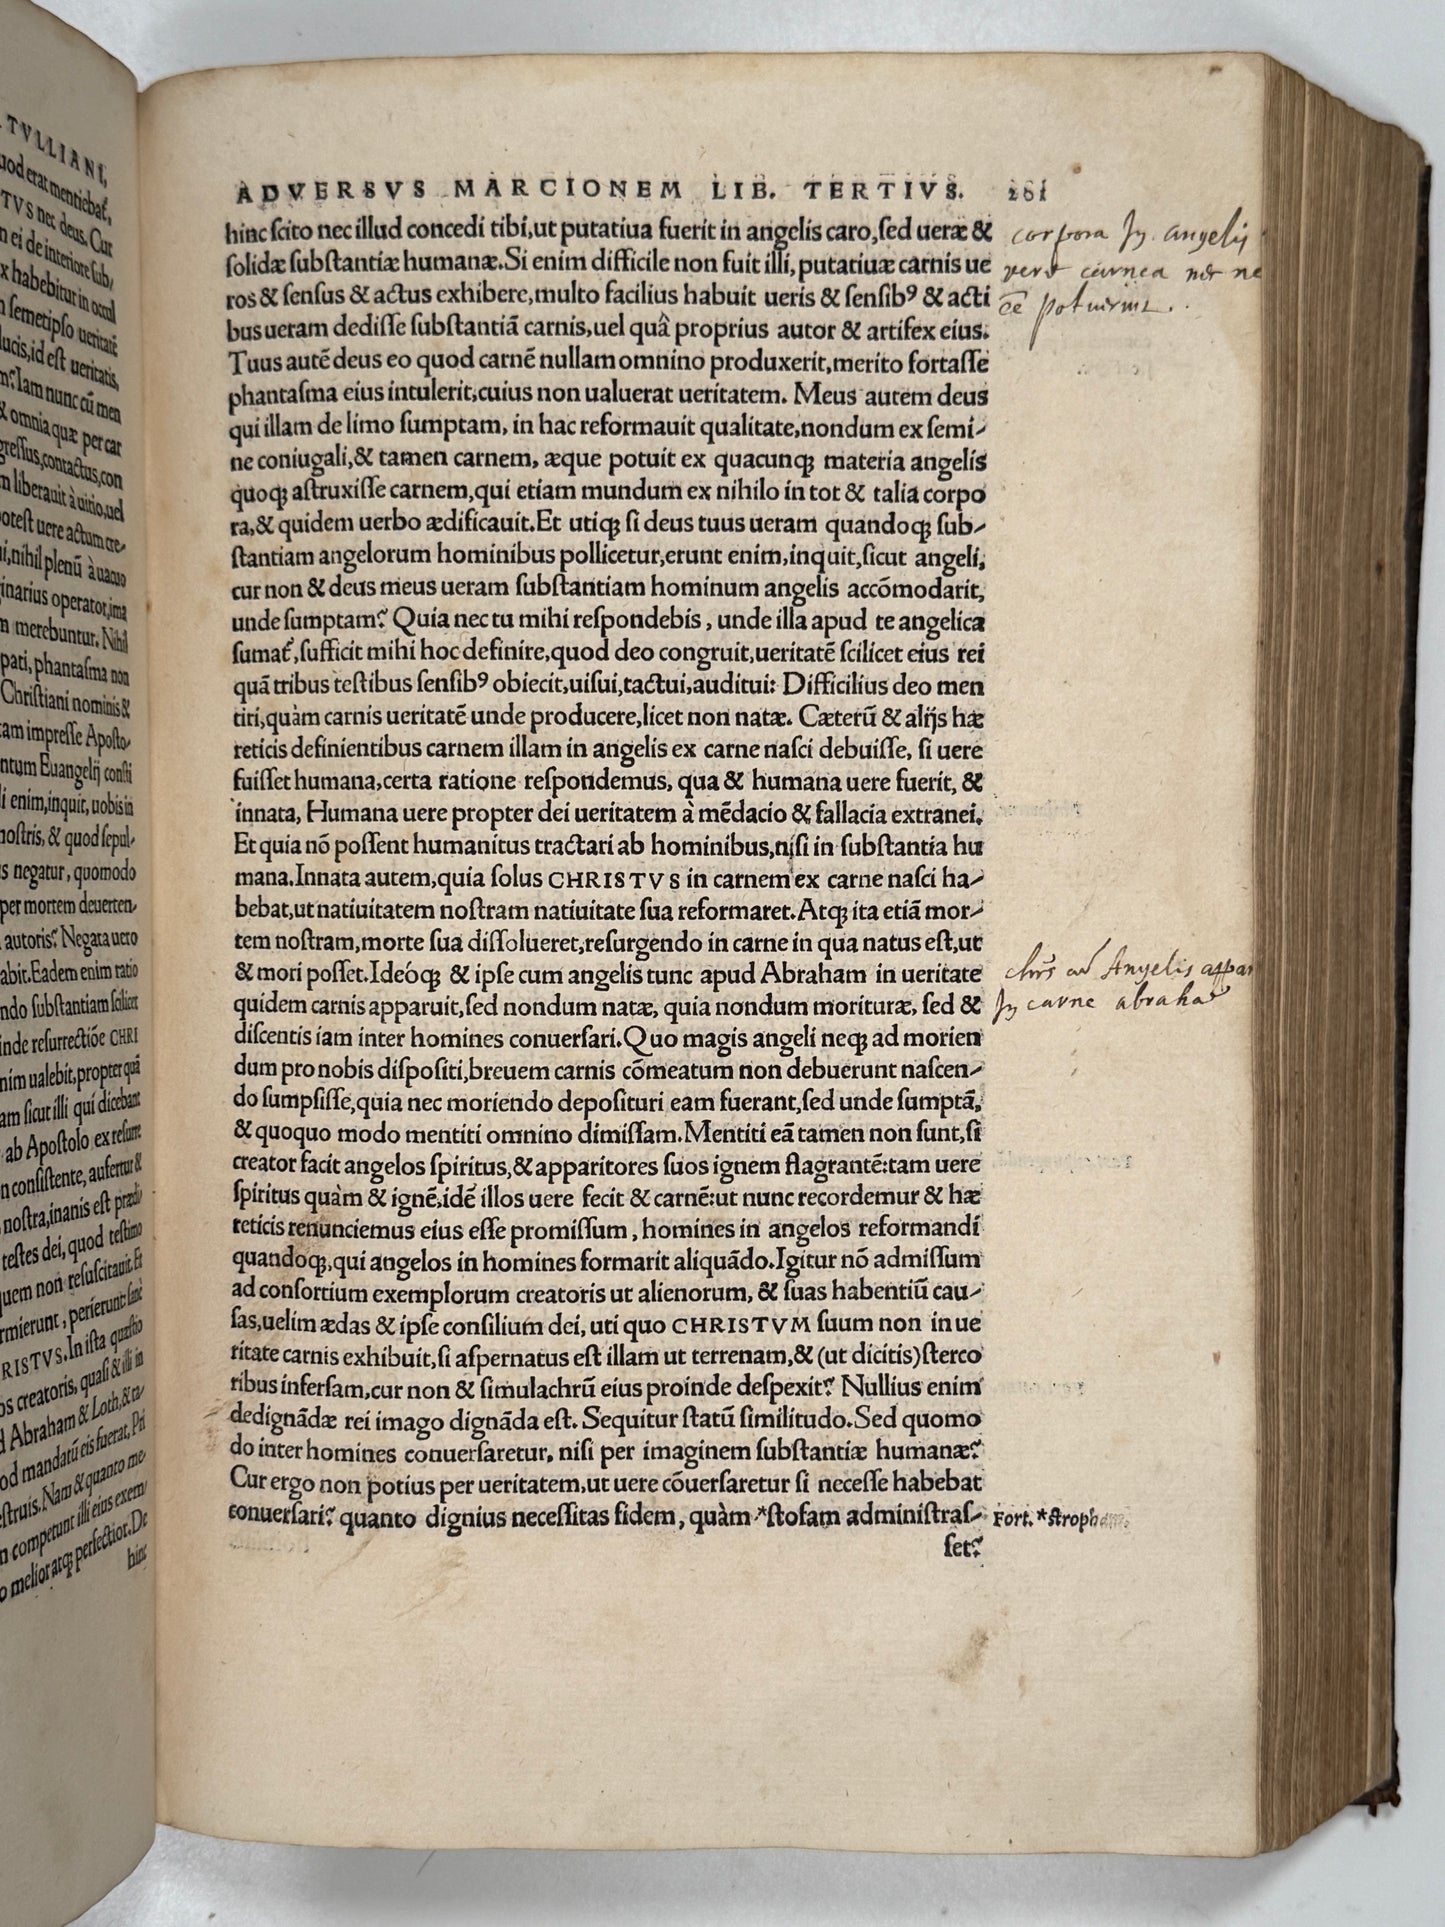 TVLLIANI,
uod erat mentiebať,
TVS nec deus. Cur
n ei de interiore sub,
x habebitur in occul
n semetipso ueritatē
lucis, id est ueritatis,
m? Iam nunc cū men
& omnia quæ per car
gressus, contactus, con
m liberauit à uitio, uel
potest uere actum cre-
i, nihil plenū à uacuo
ginarius operator, ima
n merebuntur. Nihil
pati, phantasma non
Christiani nominis &
tam impresse Aposto-
ntum Euangelij consti
i enim, inquit, uobis in
nostris, & quod sepul-
s negatur, quomodo
per mortem deuerten-
autoris? Negata uero
abit. Eadem enim ratio
ndo substantiam scilicet
inde resurrectiōe CHRI
nim ualebit, propter quā
am sicut illi qui dicebant
ab Apostolo ex resurre
n consistente, aufertur &
nostra, inanis est prædi
testes dei, quod testimo
quem non resuscitauit. Et
rmierunt, perierunt sanè
RISTVS. In ista quæstio
os creatoris, quasi & illi in
d Abraham & Loth, & ta-
od mandatū eis fuerat, Pri
estruis. Nam & quanto me-
n competunt illi eius exem/
o melior atq; perfectior. De
hinc
ADVERSVS MARCIONEM LIB. TERTIVS. 261
hinc scito nec illud concedi tibi, ut putatiua fuerit in angelis caro, sed ueræ &
solidæ substantiæ humanæ. Si enim difficile non fuit illi, putatiuæ carnis ue
ros & sensus & actus exhibere, multo facilius habuit ueris & sensibꝰ & acti
bus ueram dedisse substantiā carnis, uel quā proprius autor & artifex eius.
Tuus autē deus eo quod carnē nullam omnino produxerit, merito fortasse
phantasma eius intulerit, cuius non ualuerat ueritatem. Meus autem deus
qui illam de limo sumptam, in hac reformauit qualitate, nondum ex semi-
ne coniugali, & tamen carnem, æque potuit ex quacunq; materia angelis
quoq; astruxisse carnem, qui etiam mundum ex nihilo in tot & talia corpo
ra, & quidem uerbo ædificauit. Et utiq; si deus tuus ueram quandoq; sub-
stantiam angelorum hominibus pollicetur, erunt enim, inquit, sicut angeli,
cur non & deus meus ueram substantiam hominum angelis accōmodarit,
unde sumptam? Quia nec tu mihi respondebis, unde illa apud te angelica
sumať, sufficit mihi hoc definire, quod deo congruit, ueritatē scilicet eius rei
quā tribus testibus sensibꝰ obiecit, uisui, tactui, auditui: Difficilius deo men
tiri, quàm carnis ueritatē unde producere, licet non natæ. Cæterū & alijs hæ
reticis definientibus carnem illam in angelis ex carne nasci debuisse, si uere
fuisset humana, certa ratione respondemus, qua & humana uere fuerit, &
innata, Humana uere propter dei ueritatem à mēdacio & fallacia extranei.
Et quia nō possent humanitus tractari ab hominibus, nisi in substantia hu
mana. Innata autem, quia solus CHRISTVS in carnem ex carne nasci ha-
bebat, ut natiuitatem nostram natiuitate sua reformaret. Atq; ita etiā mor-
tem nostram, morte sua dissolueret, resurgendo in carne in qua natus est, ut
& mori posset. Ideóq; & ipse cum angelis tunc apud Abraham in ueritate
quidem carnis apparuit, sed nondum natæ, quia nondum morituræ, sed &
discentis iam inter homines conuersari. Quo magis angeli neq; ad morien
dum pro nobis dispositi, breuem carnis cōmeatum non debuerunt nascen-
do sumpsisse, quia nec moriendo deposituri eam fuerant, sed unde sumptā,
& quoquo modo mentiti omnino dimissam. Mentiti eā tamen non sunt, si
creator facit angelos spiritus, & apparitores suos ignem flagrantē: tam uere
spiritus quàm & ignē, idē illos uere fecit & carnē: ut nunc recordemur & hæ
reticis renunciemus eius esse promissum, homines in angelos reformandi
quandoq;, qui angelos in homines formarit aliquādo. Igitur nō admissum
ad consortium exemplorum creatoris ut alienorum, & suas habentiū cau-
sas, uelim ædas & ipse consilium dei, uti quo CHRISTVM suum non in ue
ritate carnis exhibuit, si aspernatus est illam ut terrenam, & (ut dicitis) sterco
ribus infersam, cur non & simulachrū eius proinde despexit? Nullius enim
dedignādæ rei imago dignāda est. Sequitur statū similitudo. Sed quomo
do inter homines conuersaretur, nisi per imaginem substantiæ humanæ?
Cur ergo non potius per ueritatem, ut uere cōuersaretur si necesse habebat
conuersari? quanto dignius necessitas fidem, quàm *stofam administras-
set?
corpora In angelis
vere carnea nec ne
eē potuerint.
chrs cū Angelis appar
In carne abrahae
Fort. *stropham.